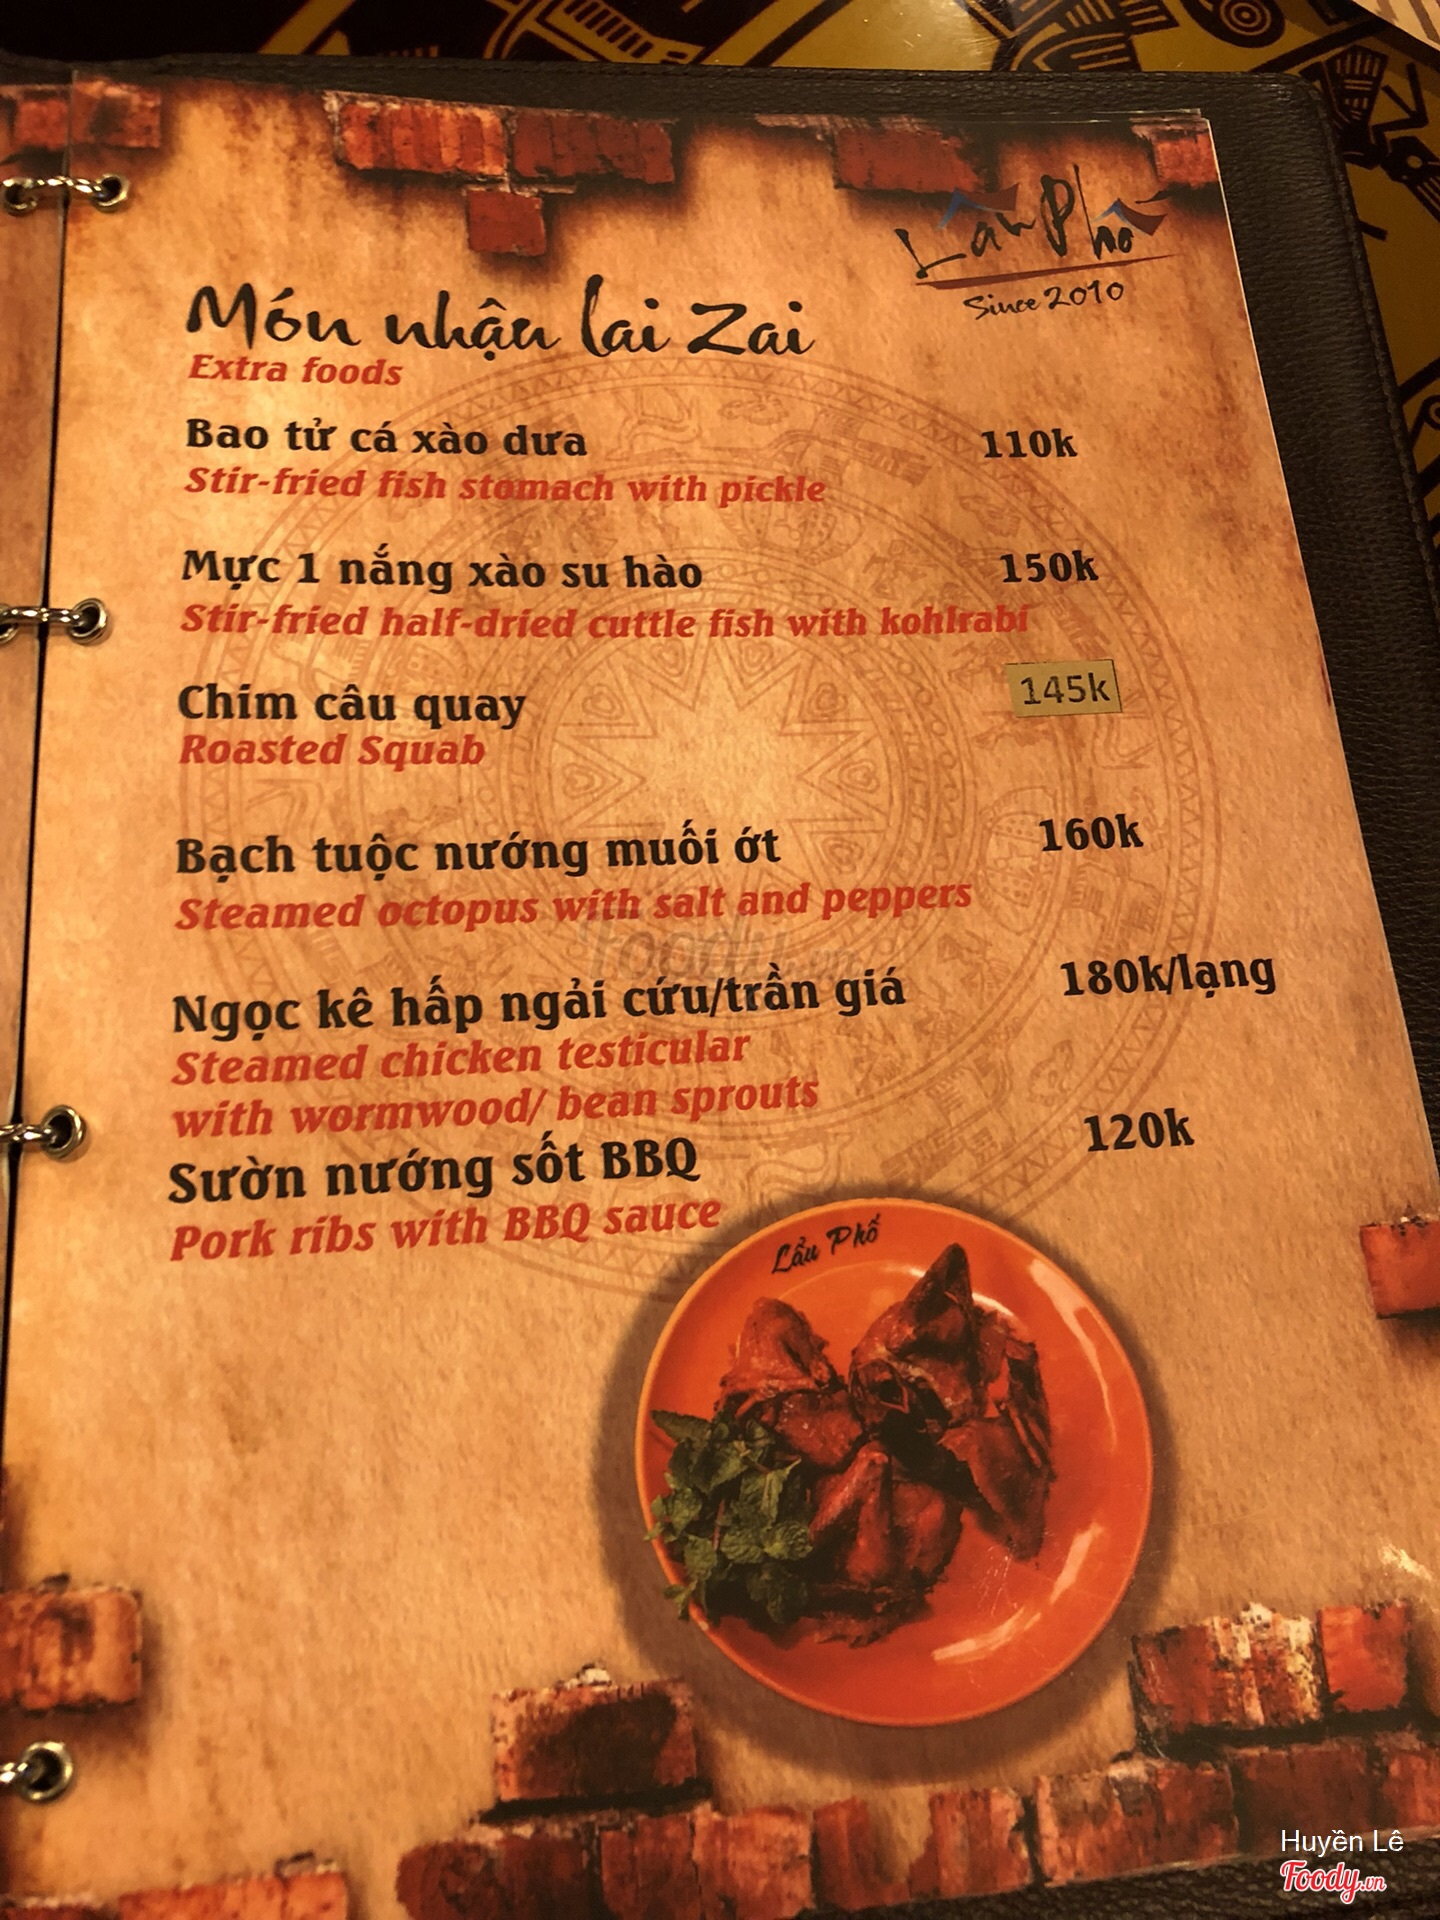 Lẩu Phố
Since 2010
Món nhậu lai Zai
Extra foods
Bao tử cá xào dưa 110k
Stir-fried fish stomach with pickle
Mực 1 nắng xào su hào 150k
Stir-fried half-dried cuttle fish with kohlrabi
Chim câu quay 145k
Roasted Squab
Bạch tuộc nướng muối ớt 160k
Steamed octopus with salt and peppers
Foody.vn
Ngọc kê hấp ngải cứu/trần giá 180k/lạng
Steamed chicken testicular
with wormwood/ bean sprouts
Sườn nướng sốt BBQ 120k
Pork ribs with BBQ sauce
Lẩu Phố
Huyền Lê
Foody.vn